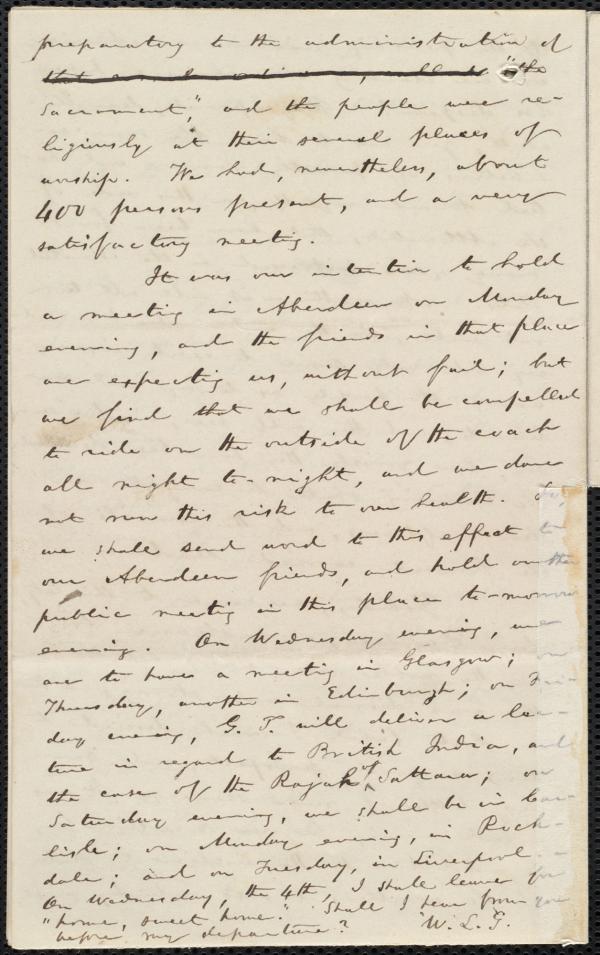 preparatory to the administration of
"the
Sacrament," and the people were re-
ligiously at their several places of
worship. We had, nevertheless, about
400 persons present, and a very
satisfactory meeting.
It was our intention to hold
a meeting in Aberdeen on Monday
evening, and the friends in that place
are expecting us, without fail; but
we find that we shall be compelled
to ride on the outside of the coach
all night to-night, and we dare
not run this risk to our health. So,
we shall send word to this effect to
our Aberdeen friends, and hold another
public meeting in this place to-morrow
evening. On Wednesday evening, we
are to have a meeting in Glasgow; on
Thursday, another in Edinburgh; on Fri-
day evening, G. T. will deliver a lec-
ture in regard to British India, and
the case of the Rajah of Sattara; on
Saturday evening, we shall be in Car-
lisle; on Monday evening, in Roch-
dale; and on Tuesday, in Liverpool –
On Wednesday, the 4th, I shall leave for
"home, sweet home." Shall I hear from you
before my departure? W. L. G.